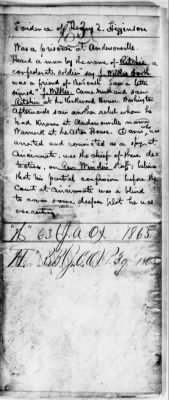 Evidence of Henry L. Higginson
Was a prisoner at Andersonville.
Heard a man by the name of Ritchie, a
confederate soldier say J. Wilkes Booth
was a friend of his. Saw a letter
signed "J. Wilkes". Came North and saw
Ritchie at the Kirkwood House. Washington
Afterwards saw another rebel whom he
had known at Andersonville named
Warnock at the Astor House.
arrested and convicted as a spy at
Cincinnati, was the chief of these
on Gen Winder Staff, believe
that his partial confession before the
Court at Cincinnati was a blind
to cover some deeper plot he was
executing
"H" 63 J.A.O 1865
"H"